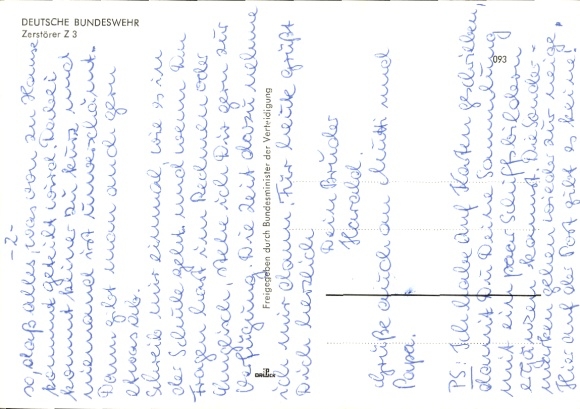 DEUTSCHE BUNDESWEHR
Zerstörer Z 3
093
Freigegeben durch Bundesminister der Verteidigung
-2-
so, daß alles, was von zu Hause
kommt geteilt wird. Dabei
kommt keiner zu kurz, und
niemand ist unverschämt.
Dann gibt man auch gern
etwas ab.
Schreib mir einmal, wie es in
der Schule geht, und wenn Du
Fragen hast im Rechnen oder
Englisch, stehe ich Dir gern zur
Verfügung. Die Zeit dazu nehme
ich mir dann. Für heute grüßt
Dich herzlich
Dein Bruder
Harald.
Grüße auch an Mutti und
Papa.
PS: Ich habe auf Karten geschrieben,
damit Du Deine Sammlung
mit ein paar Schiffsbildern
kannst. Die
marken gehen wieder zur neige.
Hier auf der Post gibt es keine.